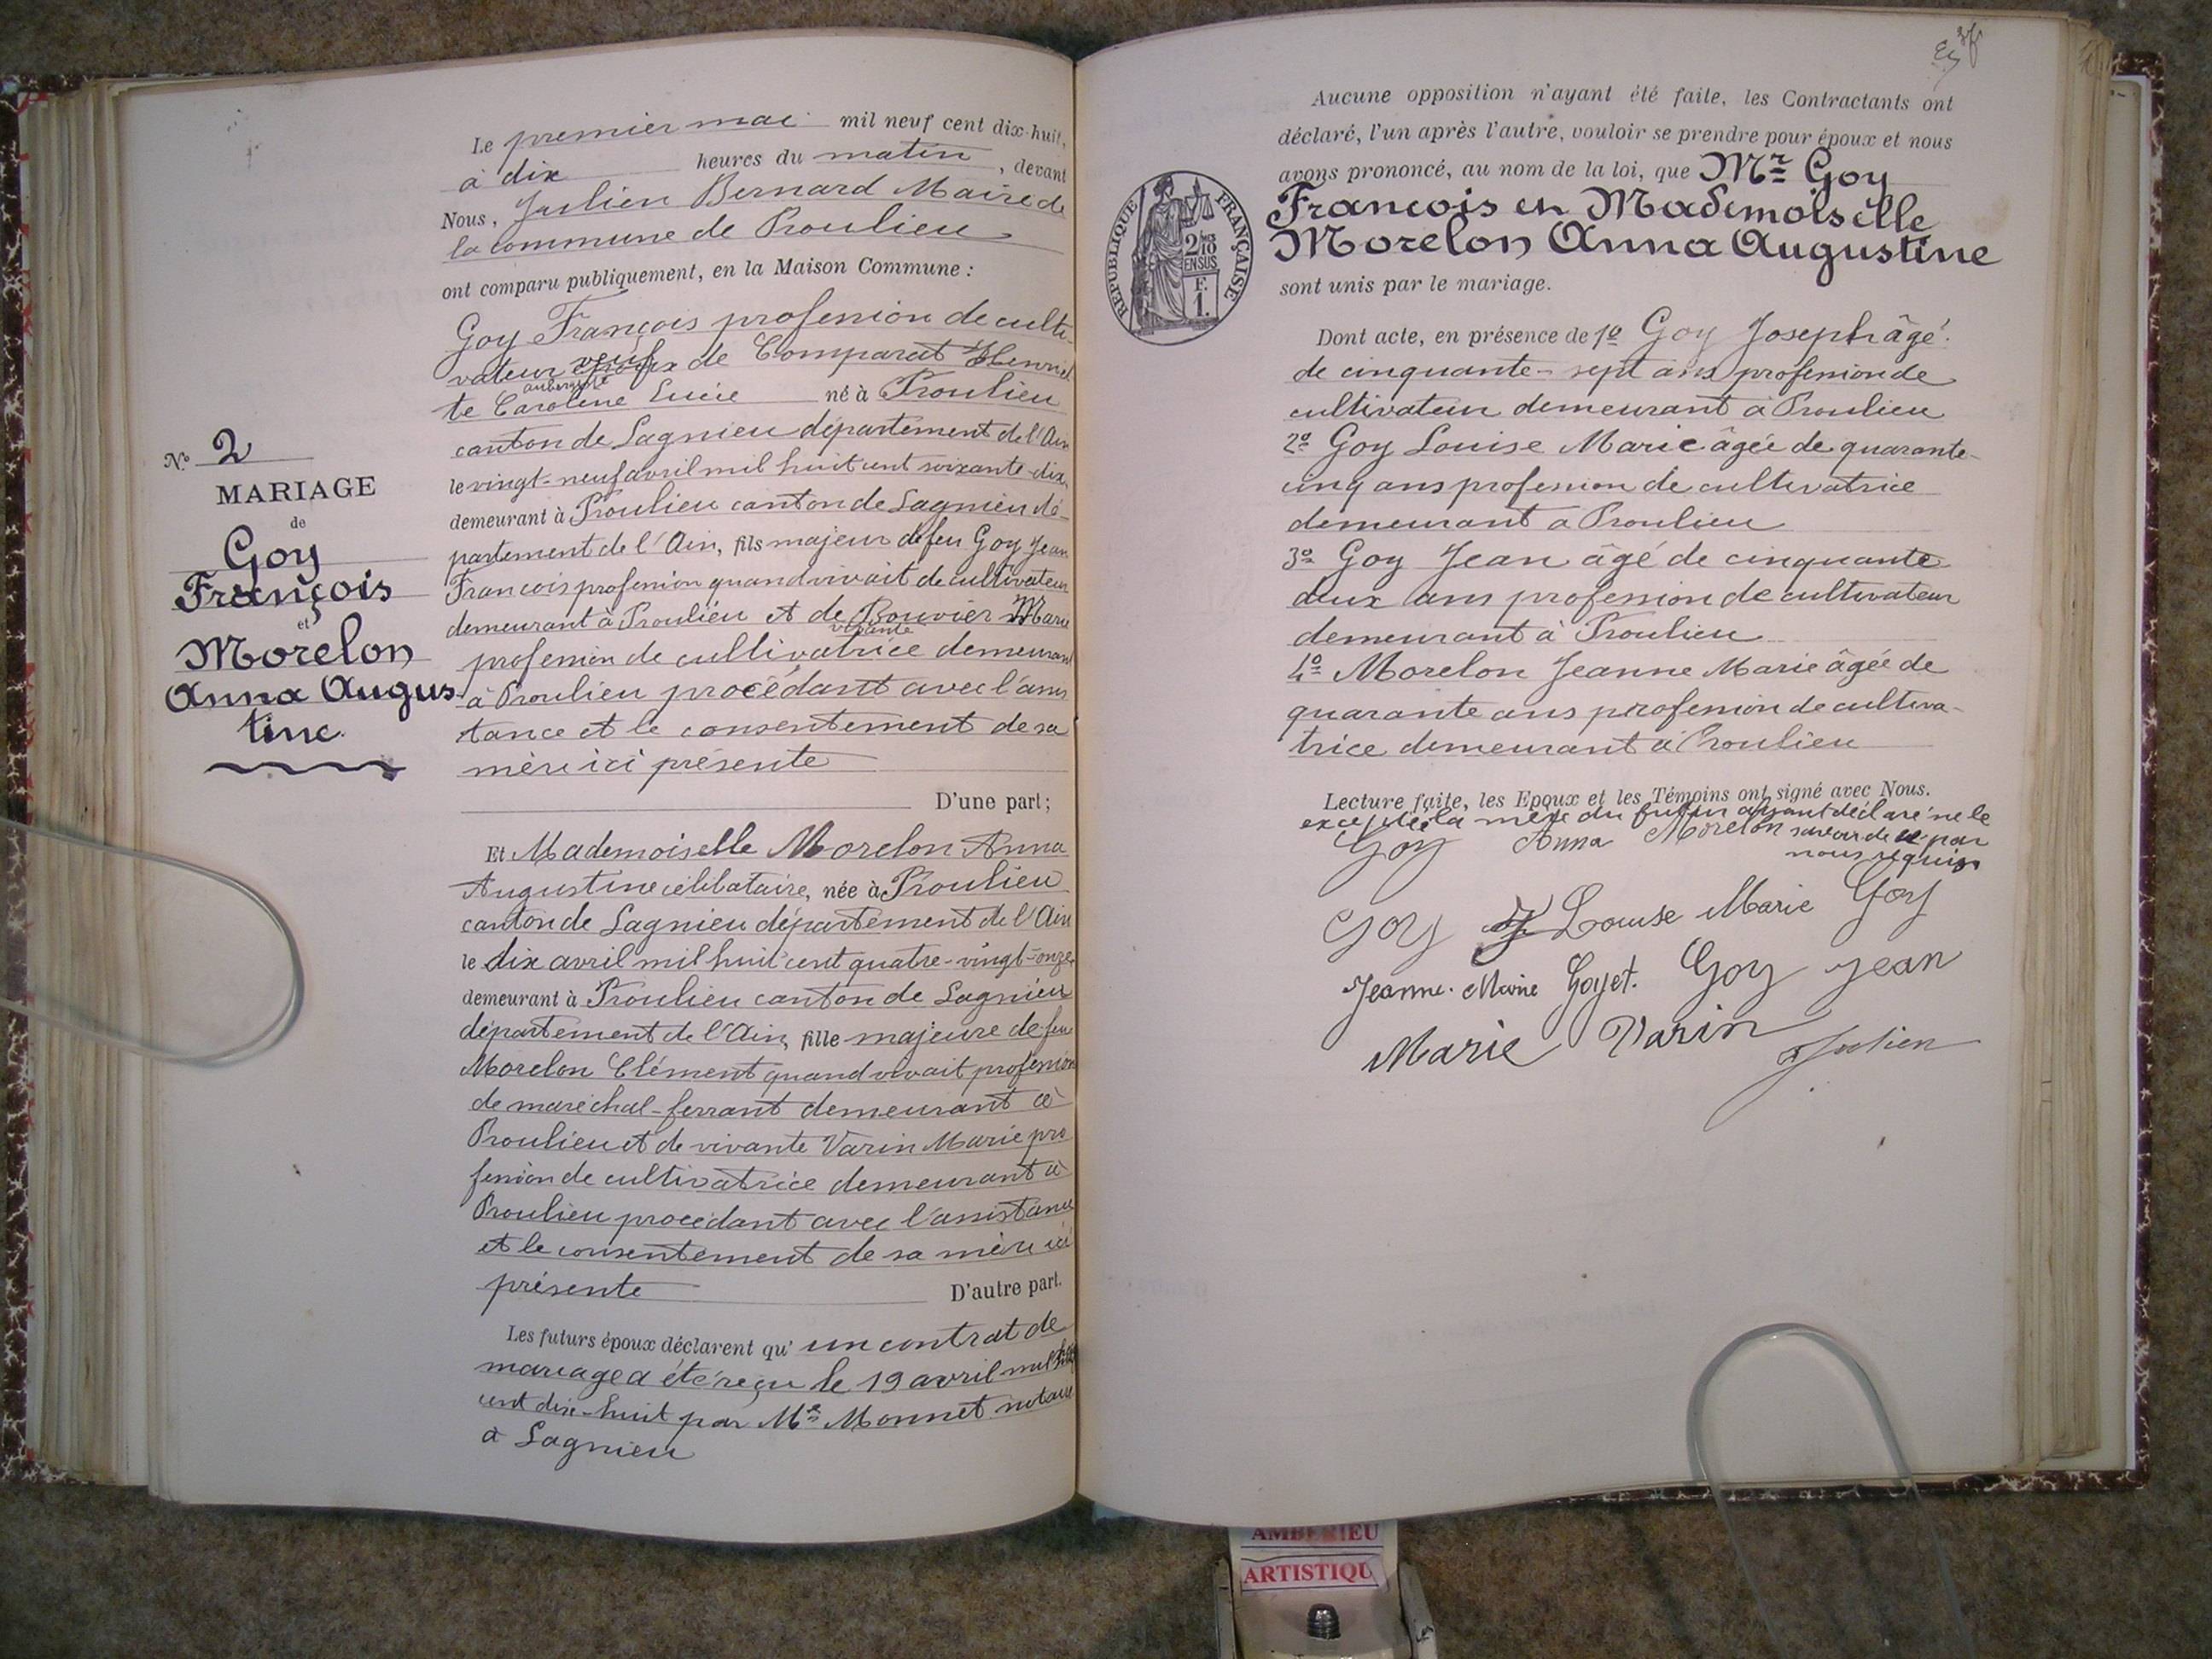 Le premier mai mil neuf cent dix-huit,
à dix heures du matin, devant
Nous, Julien Bernard Maire de
la commune de Proulieu
ont comparu publiquement, en la Maison Commune :
Goy François profession de culti-
vateur veuf de Comparat Henriet
te Caroline Lucie né à Proulieu
canton de Lagnieu département de l'Ain
le vingt-neuf avril mil huit cent soixante-dix,
demeurant à Proulieu canton de Lagnieu dé-
partement de l'Ain, fils majeur de feu Goy Jean
François profession quand vivait de cultivateur
demeurant à Proulieu et de vivante Bouvier Marie
profession de cultivatrice demeurant
à Proulieu procédant avec l'assis
tance et le consentement de sa
mère ici présente
D'une part ;
N° 2
MARIAGE
de
Goy
François
et
Morelon
Anna Augus-
tine
Et Mademoiselle Morelon Anna
Augustine célibataire, née à Proulieu
canton de Lagnieu département de l'Ain
le dix avril mil huit cent quatre-vingt-onze
demeurant à Proulieu canton de Lagnieu
département de l'Ain, fille majeure de feu
Morelon Clément quand vivait profession
de maréchal-ferrant demeurant à
Proulieu et de vivante Varin Marie pro
fession de cultivatrice demeurant à
Proulieu procédant avec l'assistance
et le consentement de sa mère ici
présente D'autre part.
Les futurs époux déclarent qu'un contrat de
mariage a été reçu le 19 avril mil neuf
cent dix-huit par Me Monnet notaire
à Lagnieu
Aucune opposition n'ayant été faite, les Contractants ont
déclaré, l'un après l'autre, vouloir se prendre pour époux et nous
avons prononcé, au nom de la loi, que Mr Goy
François et Mademoiselle
Morelon Anna Augustine
sont unis par le mariage.
RÉPUBLIQUE FRANÇAISE
2/10
EN SUS
F.
1.
Dont acte, en présence de 1° Goy Joseph âgé
de cinquante-sept ans profession de
cultivateur demeurant à Proulieu
2° Goy Louise Marie âgée de quarante-
cinq ans profession de cultivatrice
demeurant à Proulieu
3° Goy Jean âgé de cinquante
deux ans profession de cultivateur
demeurant à Proulieu
4° Morelon Jeanne Marie âgée de
quarante ans profession de cultiva-
trice demeurant à Proulieu
Lecture faite, les Epoux et les Témoins ont signé avec Nous.
excepté la mère du futur ayant déclaré ne le
savoir de ce par
nous requise
Goy Anna Morelon
Goy J Louise Marie Goy
Jeanne-Marie Goyet. Goy Jean
Marie Varin Julien
AMBERIEU
ARTISTIQU